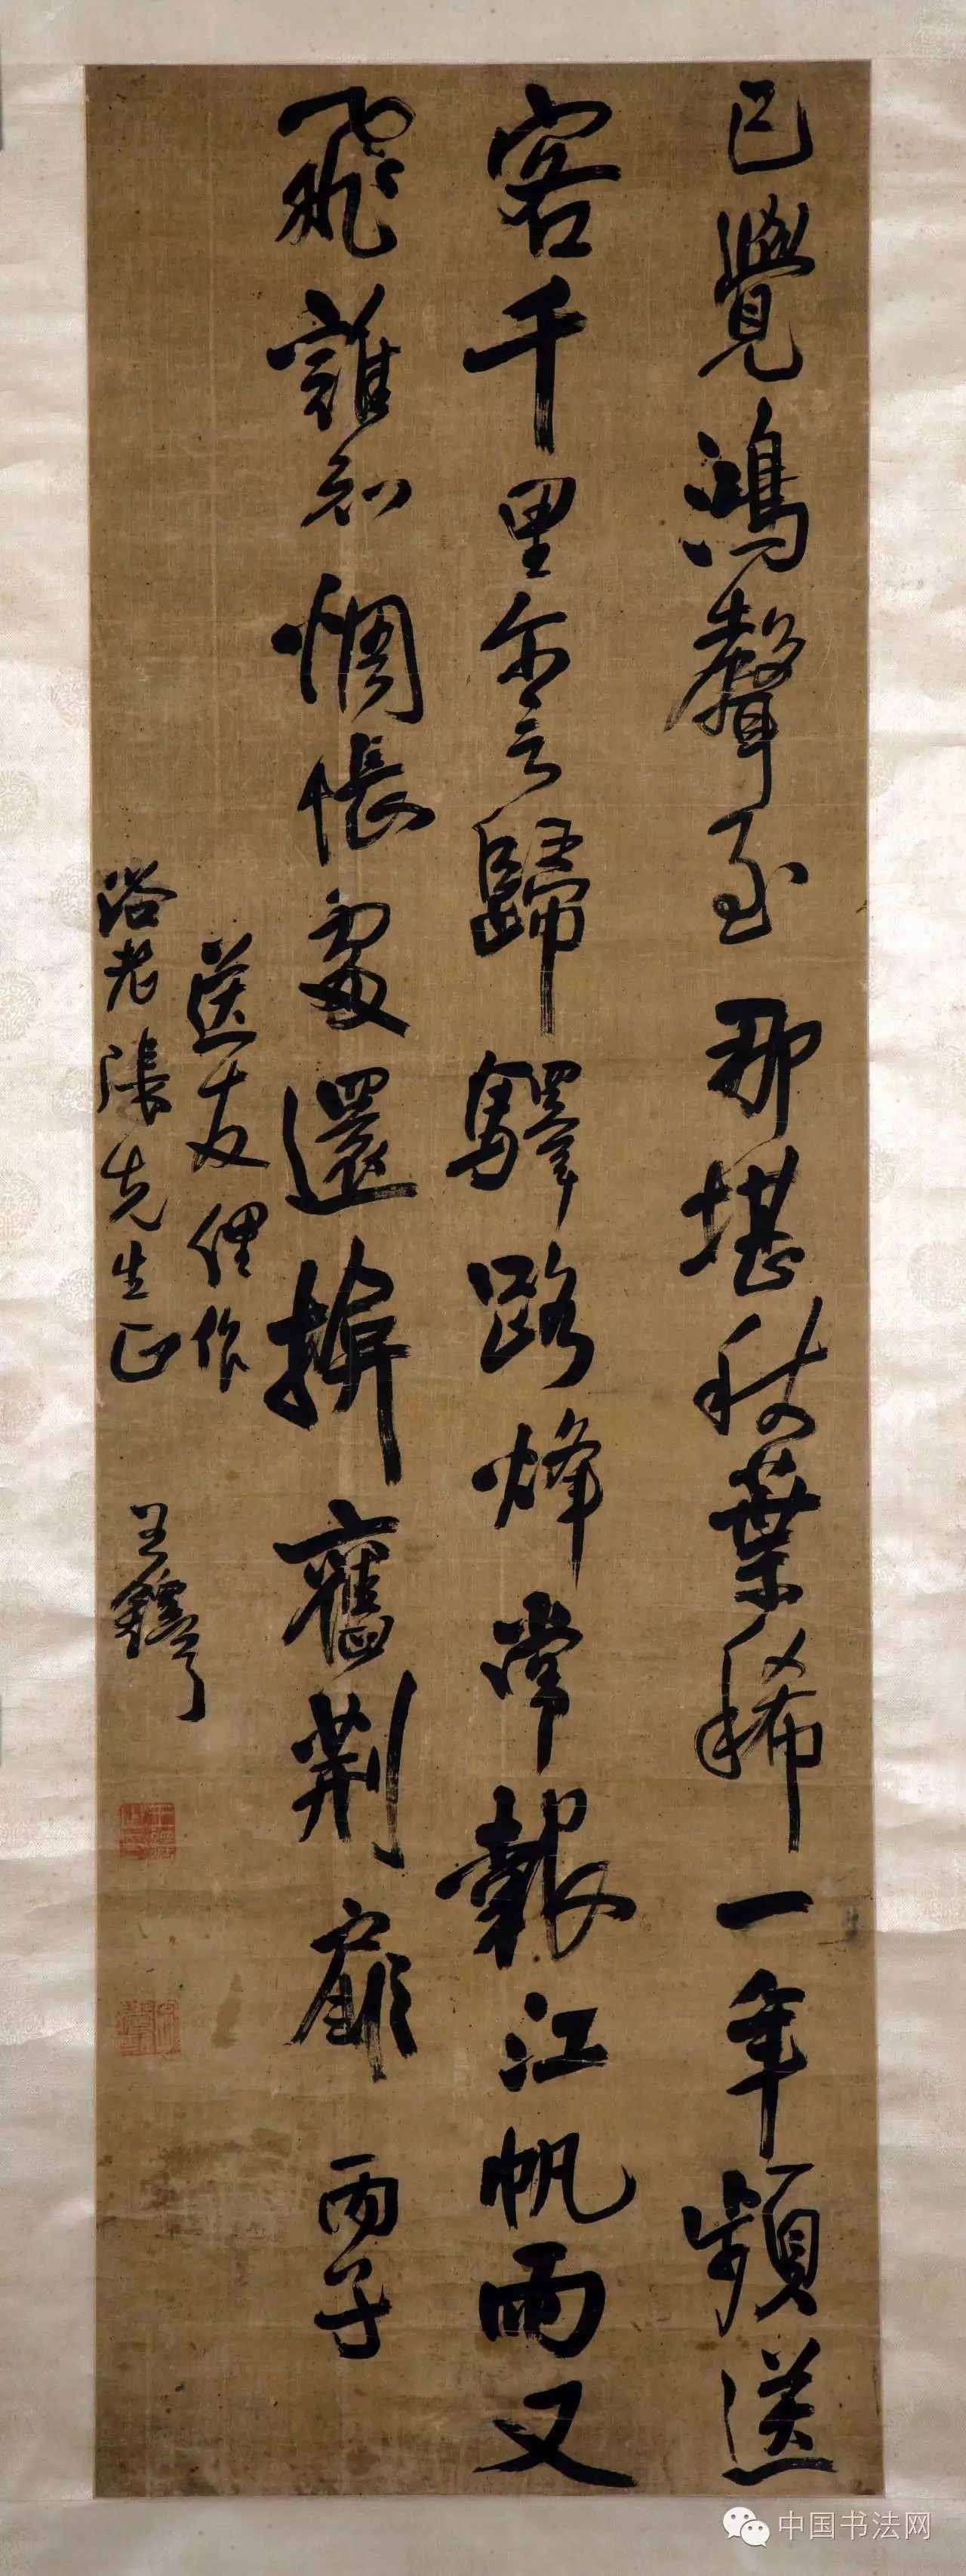 已覺鴻聲至那堪秋葉稀一年頻送
客千里尔言歸驛路烽常報江帆雨又
飛誰知惆悵處還掩舊荆扉 丙子
送友 作
老張先生正 王鐸
中国书法网